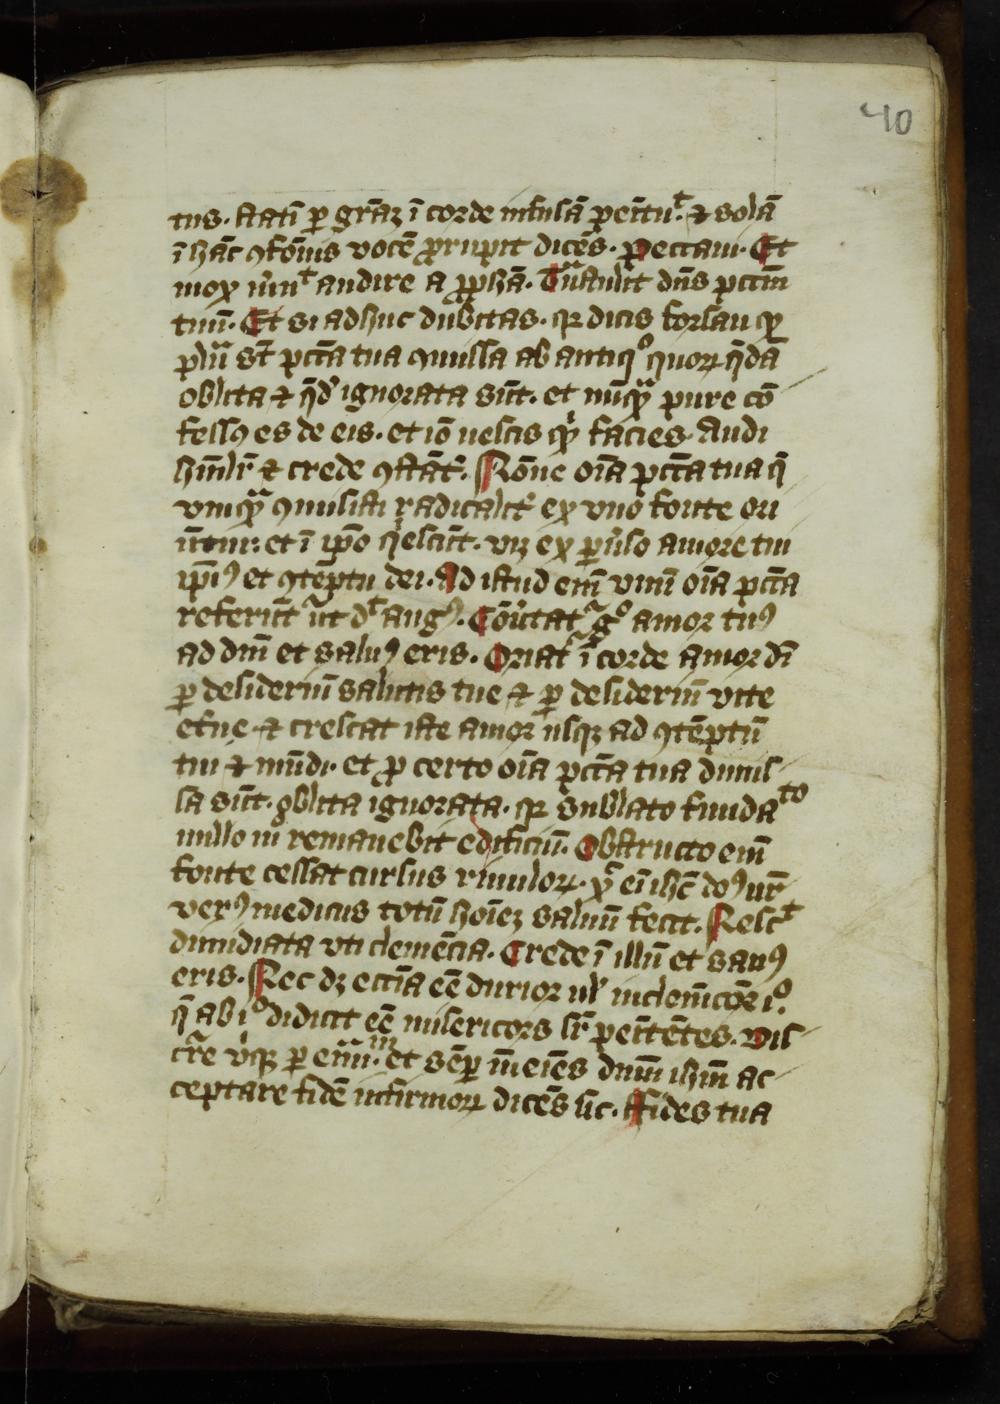 40
tus. statī per grāz ī corde infusā penitu᷒t ⁊ solā
ī hāc ꝯfōnis vocē prorupit dicēs. Peccaui. Et
mox audire a ꝓphā. Trāstulit dn̄s pctm̄
tuū. Et si adhuc dubitas. qꝛ dicis forsan qꝫ
plura sūt pctā tua ꝯmissa ab antiqͦ quoꝝ q̄dā
oblita ⁊ q̄d ignorata sūt. et nūqᷓ pure cō
fessꝰ es de eis. et iō nescis qꝫ facies. Audi
hūilr̄ ⁊ crede ꝯstāt᷑. Nōne oīa pctā tua q̄
vnqᷓ ꝯmisisti radicalit᷑ ex vno fonte ori
ūtur: et ī ipō qͥescūt. vꝫ ex puͥso amore tui
ipīꝰ et ꝯtēptu dei. Ad istud em̄ vnū oīa pctā
referūt ut dᵗ augꝰ. Cōuͥtat᷑ gͦ amor tuꝰ
ad dm̄ et saluꝰ eris. Oriat᷑ ī corde amor dī
ꝑ desideriū salutis tue ⁊ ꝑ desideriū vite
et̄ne ⁊ crescat iste amor usqꝫ ad ꝯtēptū
tui ⁊ mūdi. et ꝓ certo oīa pctā tua dimis-
sa sūt. oblita ignorata. qꝛ sublato funda
to
nullo m̄ remanebit edificiū. Obstructo em̄
fonte cessat cursus riuuloꝝ. ihc̄ doꝰ nr̄
verꝰ medicus totū hoīeꝫ saluū fecit. Nesc᷒t
dimidiata vti clemēcia. Crede ī illū et sanꝰ
eris. Nec dꝫ eccīa eē durior ul̓ inclemēcōr iͦ.
q̄ ab iͦ didicit eē misericors sr̄ penitētes. Dis-
cr̄e et sēꝑ īueīes dnm̄ ihm̄ ac-
ceptare fidē infirmoꝝ dicēs sic. Fides tua